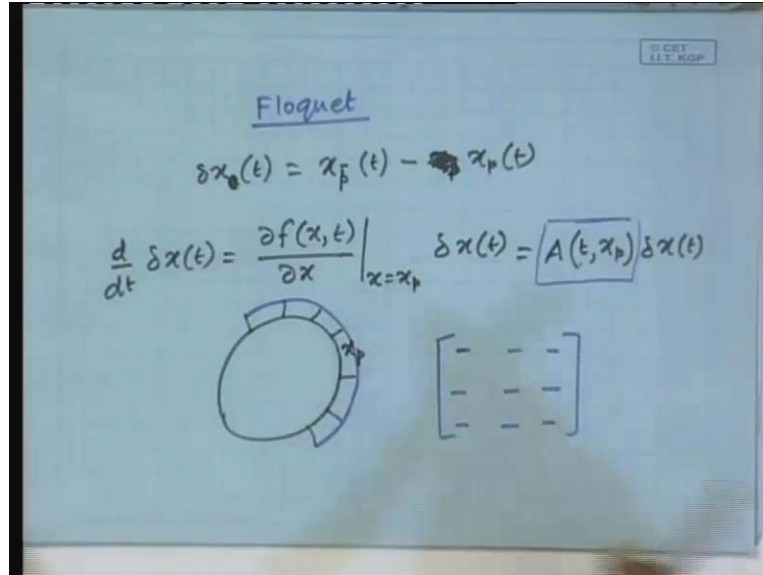 © CET
I.I.T. KGP
Floquet
δx(t) = x_p̄(t) - x_p(t)
d/dt δx(t) = ∂f(x,t)/∂x |_{x=x_p} δx(t) = A(t, x_p) δx(t)
x_p